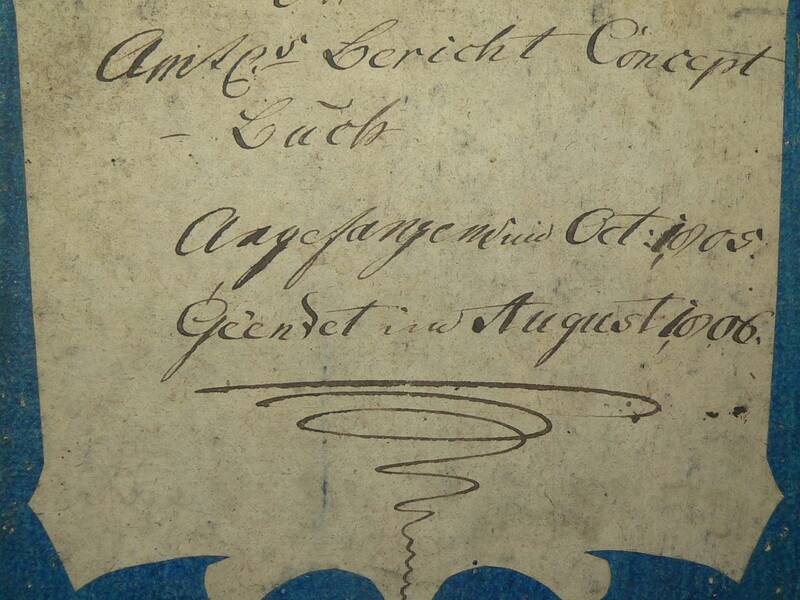 Bericht Concept
- Buch
Angefangen im Oct: 1805.
Geendet im August 1806.